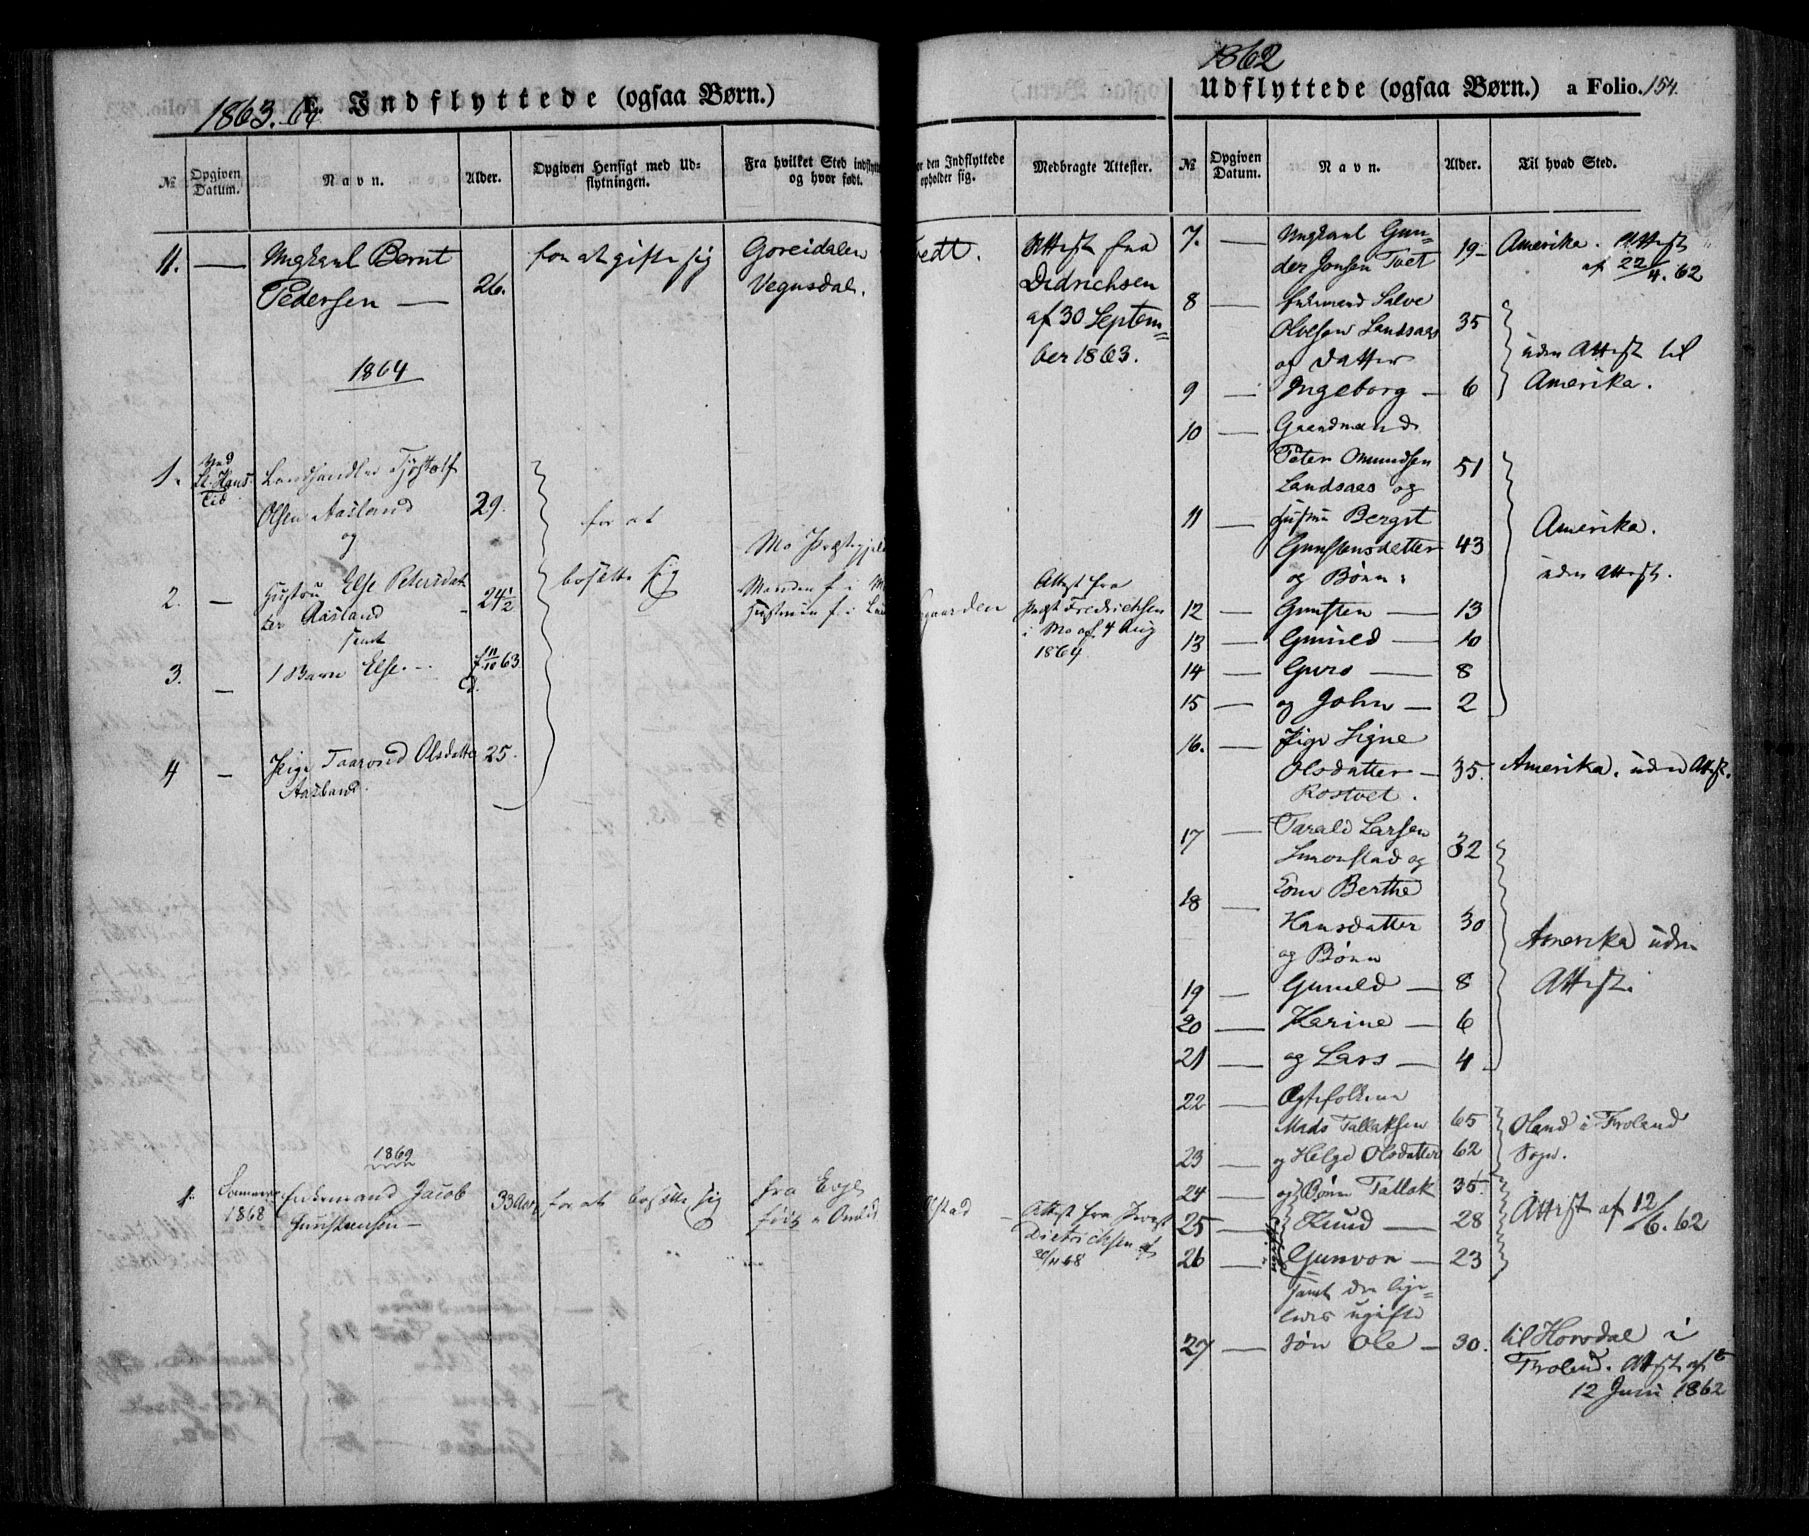 1863. 64
E. Indflyttede (ogsaa Børn.)
№
Opgiven Datum.
Navn.
Alder.
Opgiven Hensigt med Ud-
flytningen.
Fra hvilket Sted indflytt
og hvor født.
or den Indflyttede
opholder sig.
Medbragte Attester.
11. — Ungkarl Bernt
Pedersen — 26.
for at gifte sig
Goreidalen
Vegusdal.
tvedt.
Attest fra
Didrichsen
af 30 Septem-
ber 1863.
1864
1. Ved
St. Hans
Tid
Landhandler Tjøstolf
Olsen Aasland 29.
og
2. — Hustru Else Petersdat
ter Aasland 24 1/2
samt
3. — 1 Barn Else. — f 11/10 63
for at
bosætte sig
Mo Præstegjeld
Manden f. i M
Hustruen f. i
gaarden
Attest fra
Præst Fredrichsen
i Mo af 4 Aug
1864.
4 — Pige Taarond Olsdatte 25.
Aasland.
1869
1. Sommeren
1868
Enkemand Jacob
Gunstensen — 33 Aar
for at bosætte sig
fra Evje
født i Omlid
stad —
Attest fra Præst
Dietrichsen af
20/11 68
1862
Udflyttede (ogsaa Børn.) a Folio. 154.
№
Opgiven
Datum.
Navn.
Alder.
Til hvad Sted.
7. — Ungkarl Gun-
der Jonsen Tvet 19 — Amerika. Attest
af 22/4. 62
8 — Enkemand Salve
Olvesen Landsaas 35
og Datter
uden Attest til
9 — Ingeborg — 6 Amerika.
10 — Gaardmand
Peter Omundsen 51
Landsaas og
11 — Hustru Bergit
Gunstensdatter 43
og Børn:
Amerika.
uden Attest.
12 — Gunsten — 13
13 — Gunild — 10
14 — Guro — 8
15 — og John — 2
16. — Pige Signe
Olsdatter — 35. Amerika. uden Attest.
Rostvet.
17 — Tarald Larsen 32
Simonstad og
18 — Kone Berthe
Hansdatter 30
og Børn
Amerika uden
Attest.
19 — Gunild — 8
20 — Karine — 6
21 — og Lars — 4
22 — Ægtefolkene
Mads Tallaksen 65
23 — og Helge Olsdatter 62
Oland i Froland
Sogn.
24 — og Børn Tallak 35.
25 — Knud — 28
26 — Gunvor — 23
Attest af 12/6. 62
samt den lige-
ledes ugifte
27 — Søn Ole — 30. til Hovsdal i
Froland. Attest af
12 Juni 1862